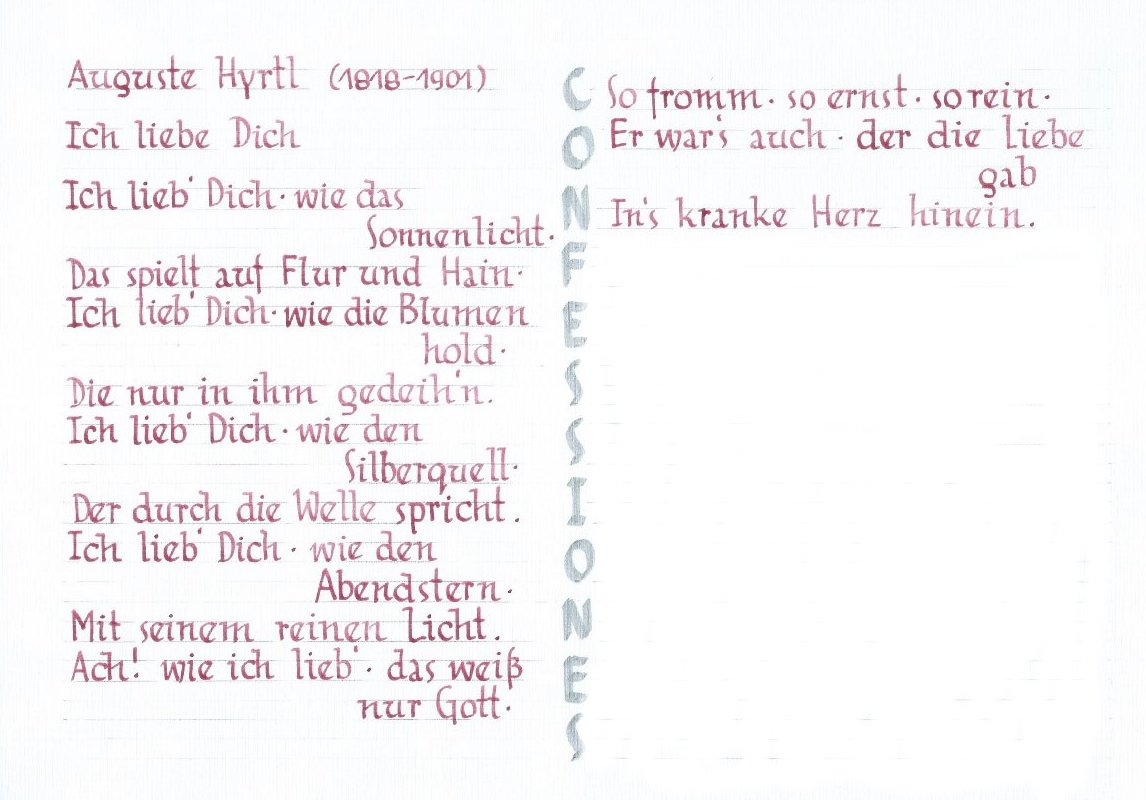 Auguste Hyrtl (1818-1901)
Ich liebe Dich
Ich lieb' Dich · wie das
Sonnenlicht ·
Das spielt auf Flur und Hain ·
Ich lieb' Dich · wie die Blumen
hold ·
Die nur in ihm gedeih'n.
Ich lieb' Dich · wie den
Silberquell ·
Der durch die Welle spricht .
Ich lieb' Dich · wie den
Abendstern ·
Mit seinem reinen Licht .
Ach! wie ich lieb' · das weiß
nur Gott ·
CONFESSIONES
So fromm · so ernst · so rein ·
Er war's auch · der die Liebe
gab
In's kranke Herz hinein .